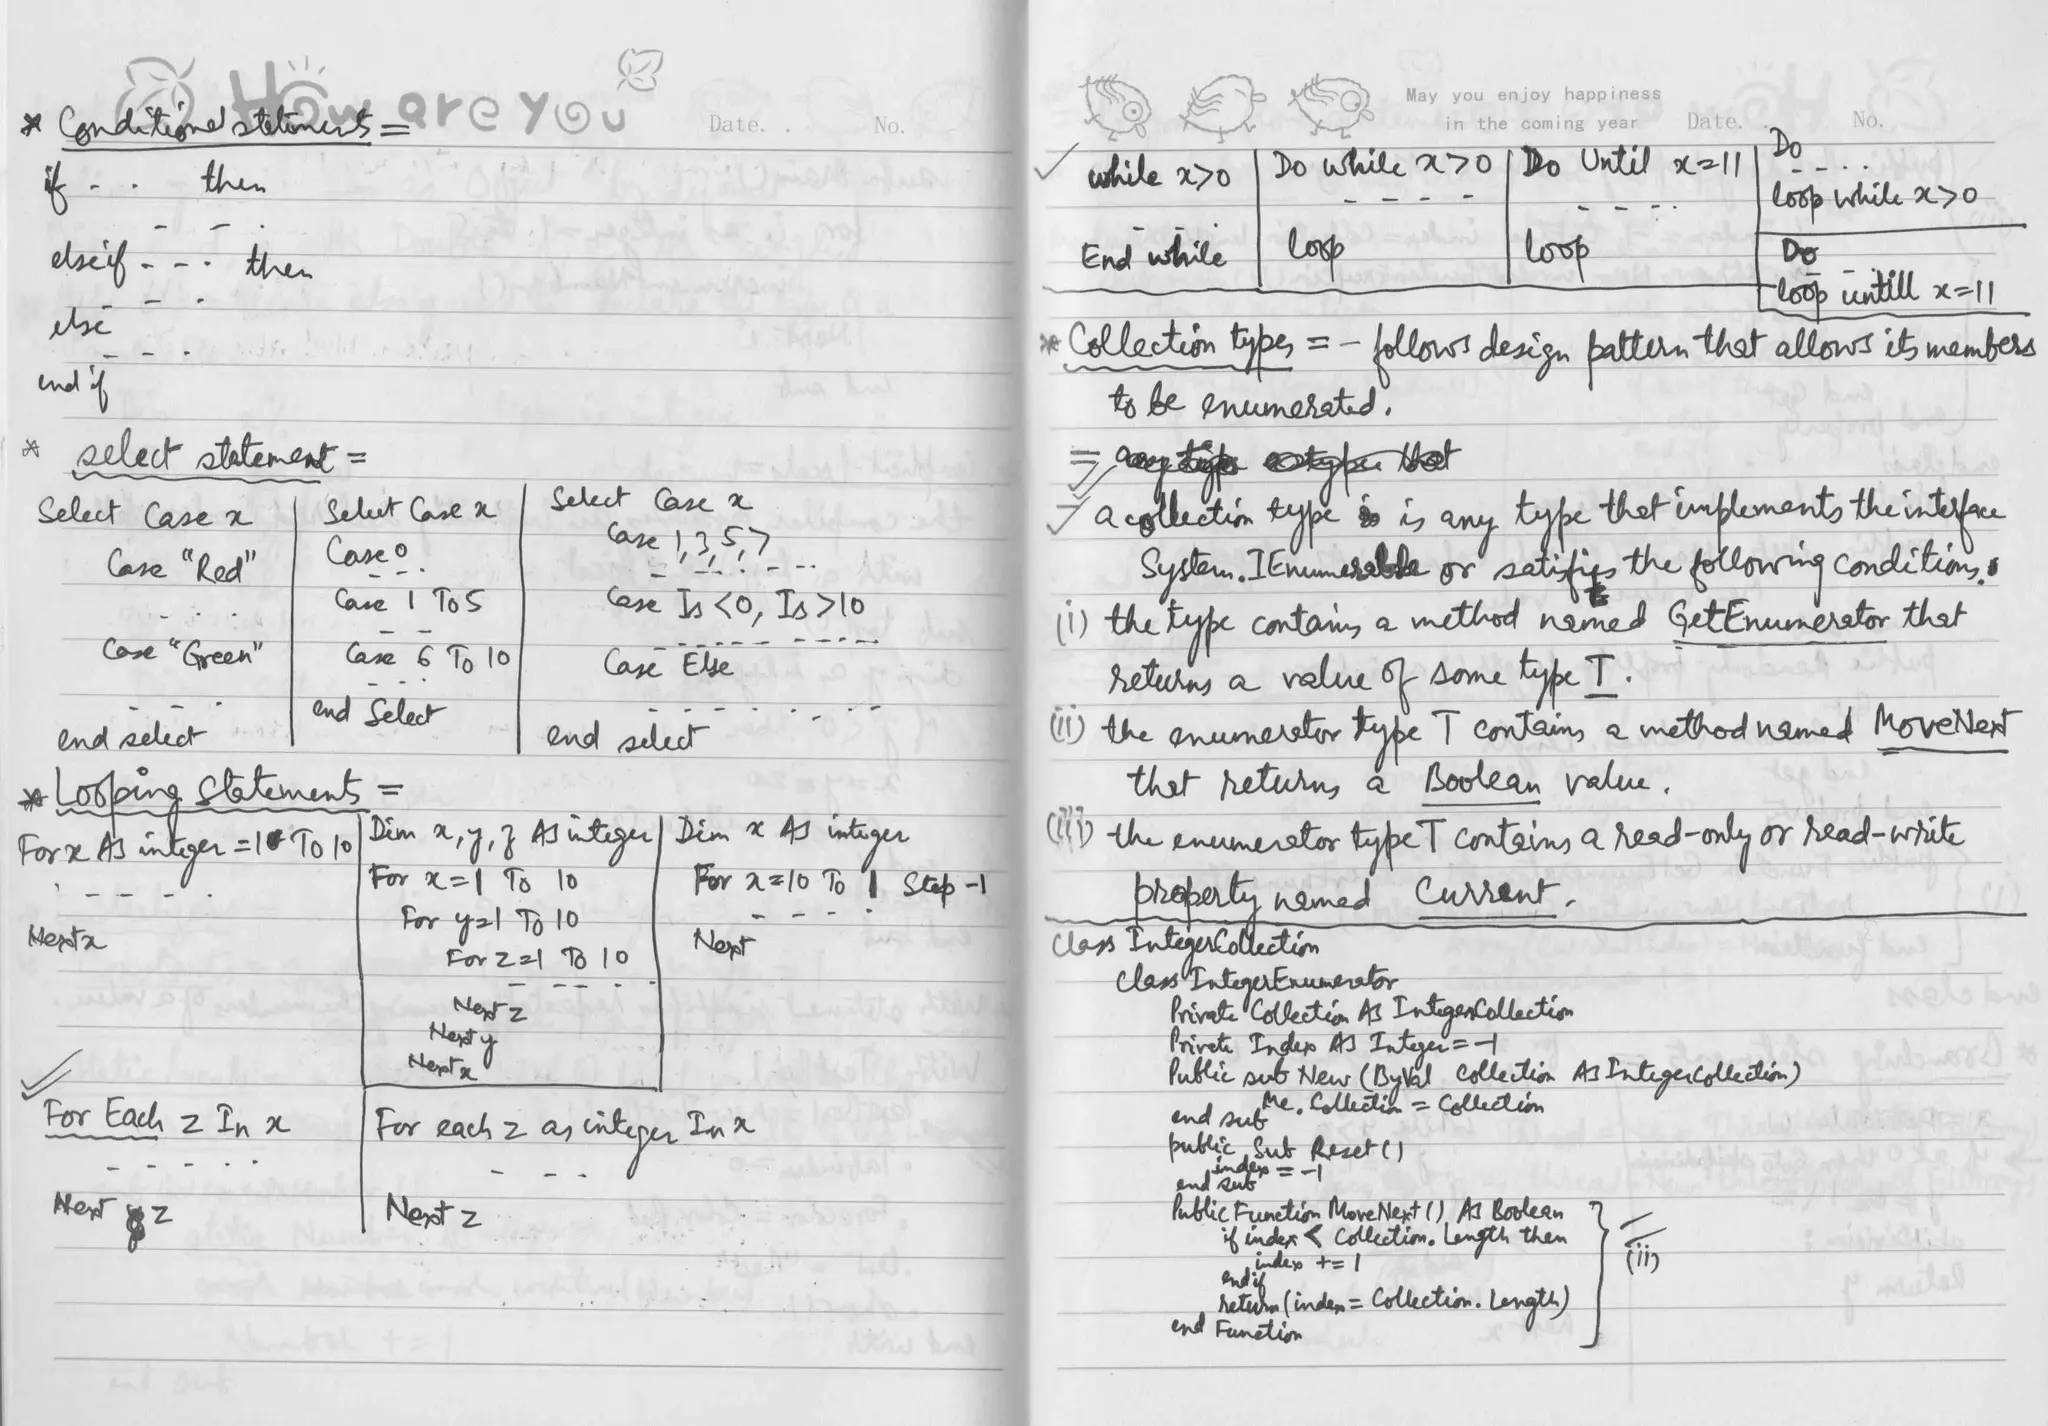 How are you
Date. . . No.
* Conditional statements =
if - - . then
- - .
elseif - - - . then
- - - .
else
- - - .
end if
* select statement =
Select Case x
Case "Red"
- - .
Case "Green"
- - - .
end select
Select Case x
Case 0
- - - .
Case 1 To 5
- -
Case 6 To 10
- - - .
end Select
Select Case x
Case 1, 3, 5, 7
- - - - - - - .
Case Is <0, Is >10
- - - - - - - - - .
Case Else
- - - - - - - - -
end select
* Looping Statements =
For x As integer = 1 To 10
- - - - .
Next x
Dim x, y, z As integer
For x=1 To 10
For y=1 To 10
For z=1 To 10
- - - - - .
Next z
Next y
Next x
Dim x As integer
For x=10 To 1 Step -1
- - - - .
Next
For Each z In x
- - - - - .
Next z
For each z as integer In x
- - - .
Next z
May you enjoy happiness
in the coming year Date. . No.
while x>0
- - - .
End while
Do while x>0
- - - - -
loop
Do Until x=11
- - - - .
loop
Do
- - - - .
loop while x>0
Do
- - -
loop untill x=11
* Collection types = - follows design pattern that allows its members
to be enumerated.
- a collection type is any type that implements the interface
System.IEnumerable or satisfies the following conditions.
(i) the type contains a method named GetEnumerator that
returns a value of some type T.
(ii) the enumerator type T contains a method named MoveNext
that returns a Boolean value.
(iii) the enumerator type T contains a read-only or read-write
property named Current.
Class IntegerCollection
Class IntegerEnumerator
Private Collection As IntegerCollection
Private Index As Integer = -1
Public sub New (ByVal Collection As IntegerCollection)
Me. Collection = Collection
end sub
public Sub Reset ()
index = -1
end sub
Public Function MoveNext () As Boolean
if index < Collection. Length then
index += 1
end if
return (index = Collection. Length)
end Function
(ii)